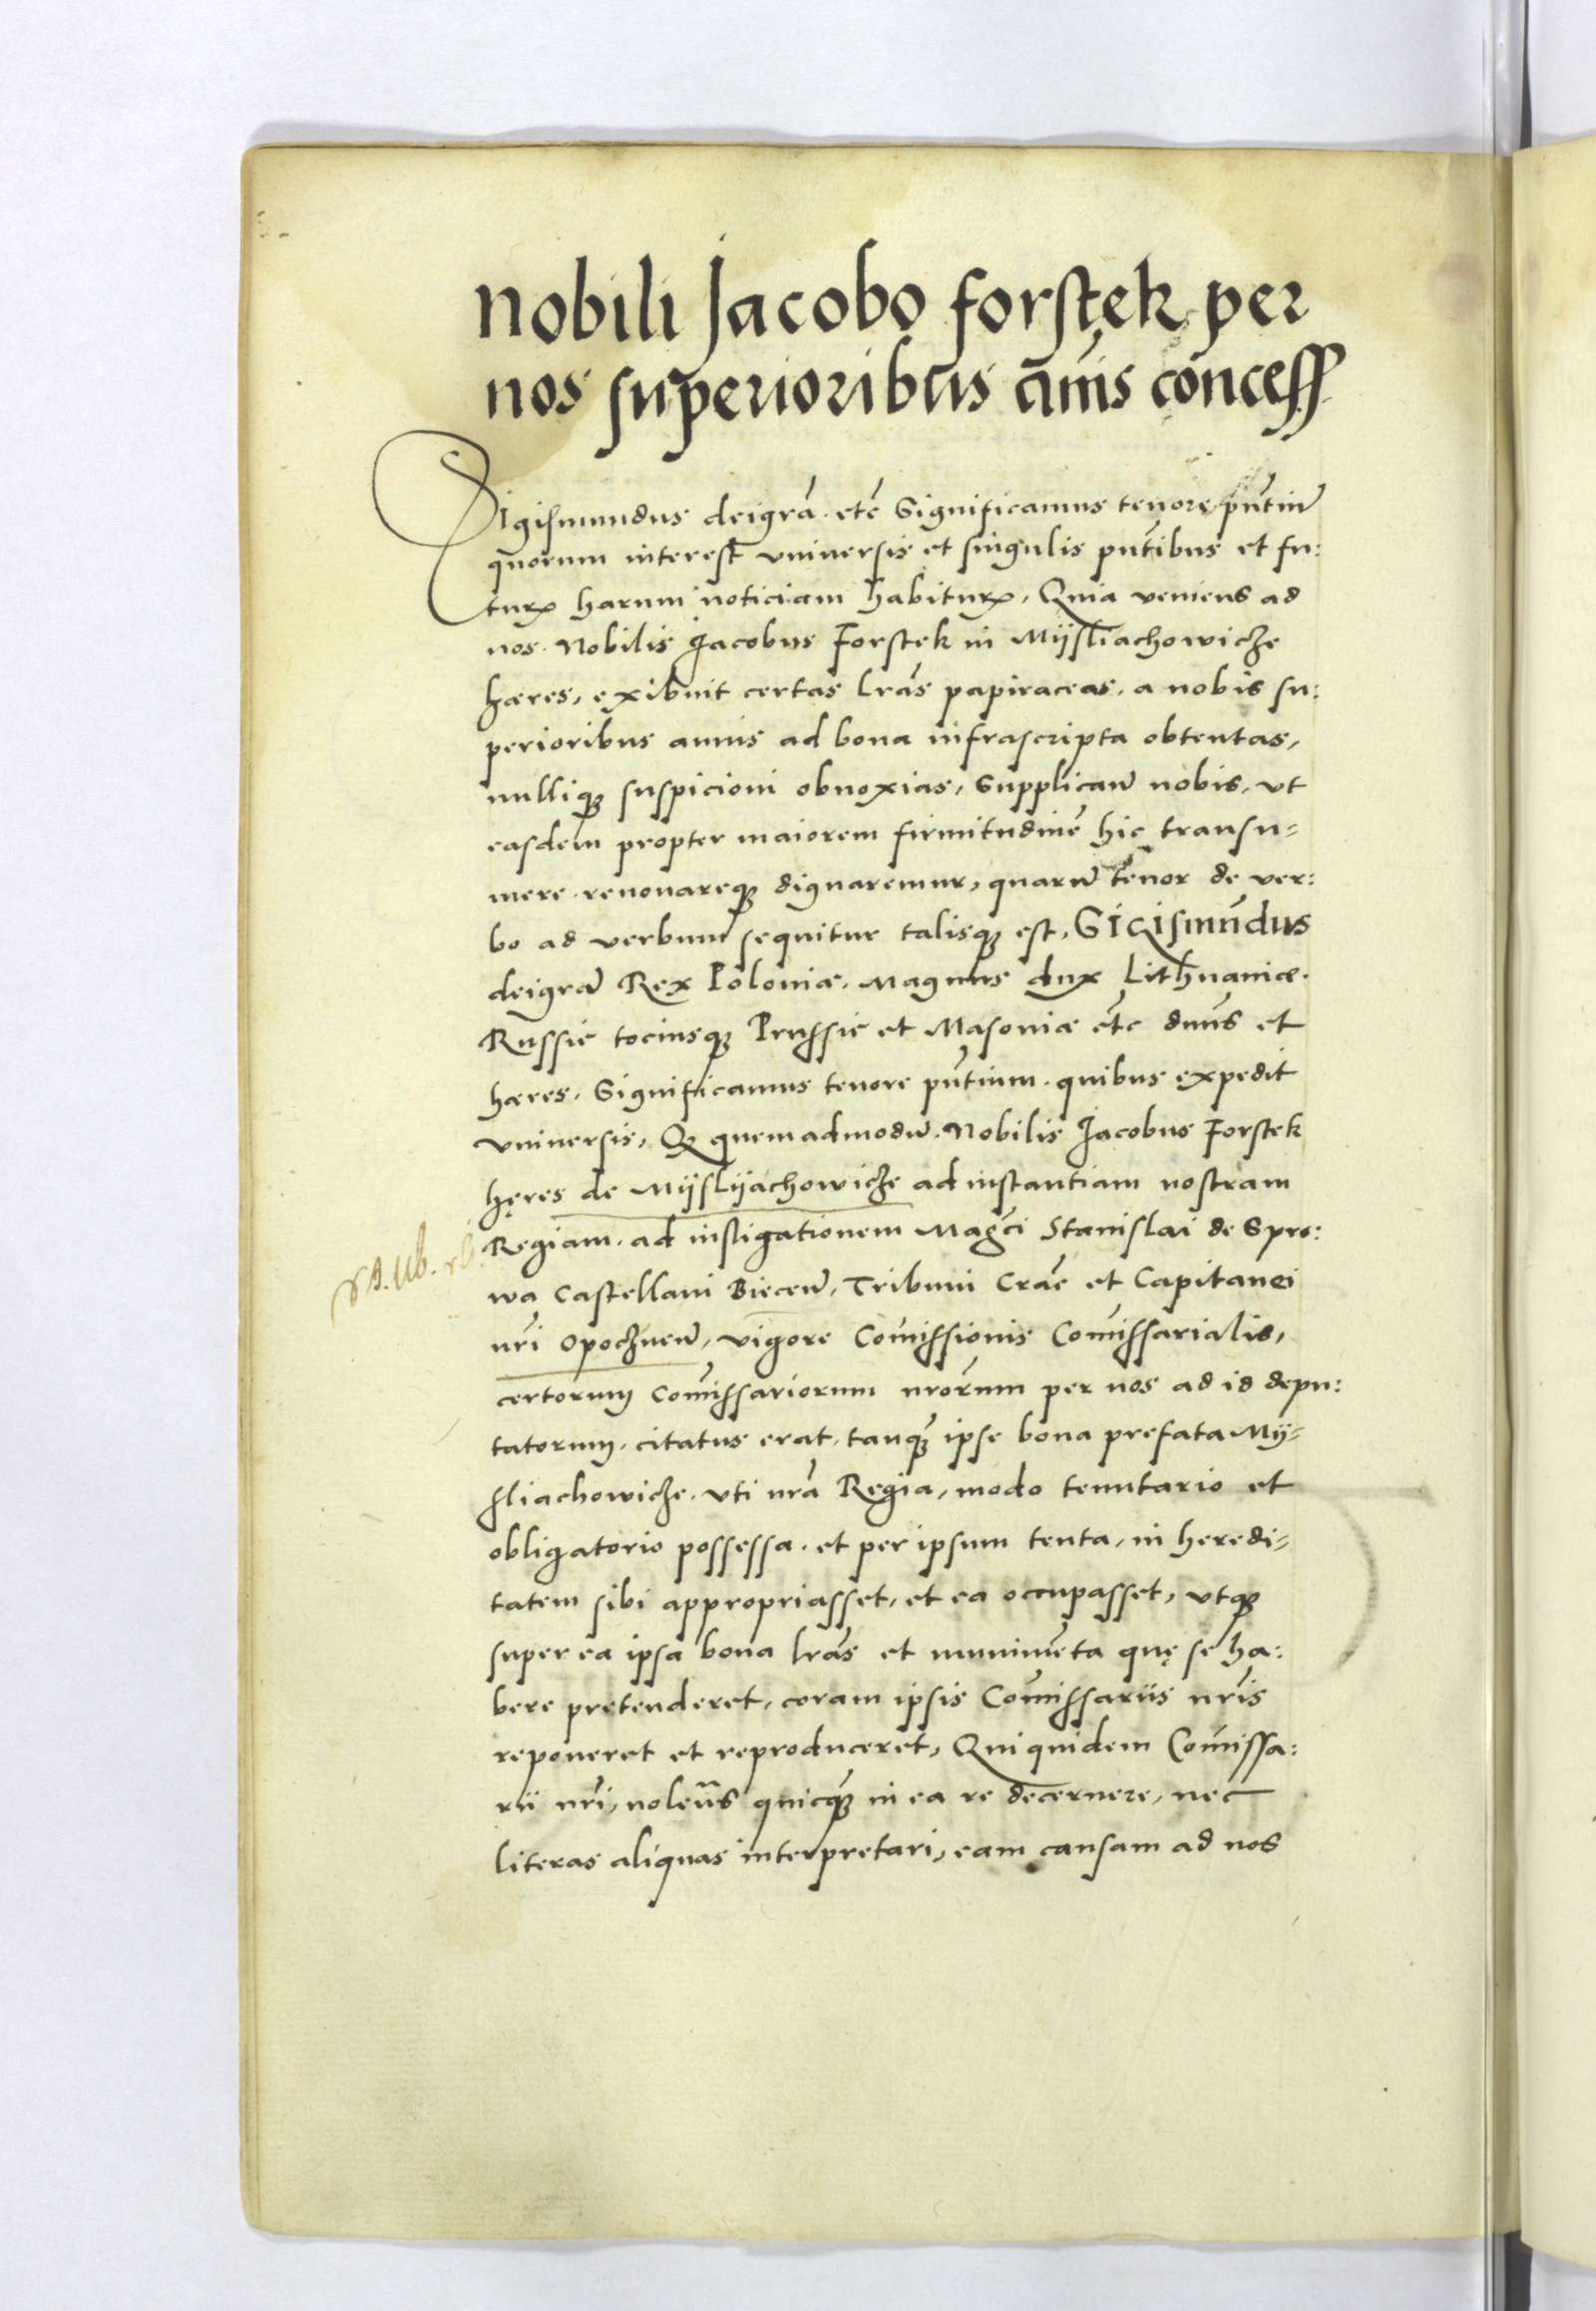 nobili Jacobo forstek per
nos superioribus am̃is concess
Sigismundus deigrã. etc̃ Significamus tenore pñtiũ
quorum interest vniversis et singulis pñtibus et fu:
turꝝ harum noticiam habiturꝝ, Quia veniens ad
nos. Nobilis Jacobus Forstek in Mijsliachowicze
hæres, exibuit certas lrãs papiraceas, a nobis su:
perioribus annis ad bona infrascripta obtentas,
nulliqꝫ suspicioni obnoxias, Supplicaw̃ nobis, vt
easdem propter maiorem firmitudinẽ hic transu=
mere. renovareqꝫ dignaremur, quarũ tenor de ver:
bo ad verbum sequitur talisqꝫ est, SIGismũdus
deigrã Rex Poloniæ, Magnus dux Lithuaniæ.
Russie tociusqꝫ Prussie et Masoviæ etc̃ dnũs et
hæres, Significamus tenore pñtium. quibus expedit
vniversis, Qꝫ quemadmodũ. Nobilis Jacobus Forstek
hęres de Mijslijachowicze ad instantiam nostram
Regiam. ad instigationem Magc̃i Stanislai de Spro:
wa Castellani Biecen̄, Tribuni Crãc et Capitanei
nr̃i Opocznen̄, vigore Com̃issionis Com̃issarialis,
certorum Com̃issariorum nrõrum per nos ad id depu:
tatorum, citatus erat, tanqꝫ ipse bona prefata Mij=
sliachowicze. vti nrã Regia, modo tenutario et
obligatorio possessa. et per ipsum tenta, in heredi=
tatem sibi appropriasset, et ea occupasset, vtqꝫ
super ea ipsa bona lrãs et munimẽta quę se ha:
bere pretenderet, coram ipsis Com̃issariis nrĩs
reponeret et reproduceret, Qui quidem Com̃issa:
rii nrĩ, nolẽtes quicqꝫ in ea re decernere, nec
literas aliquas interpretari, eam causam ad nos